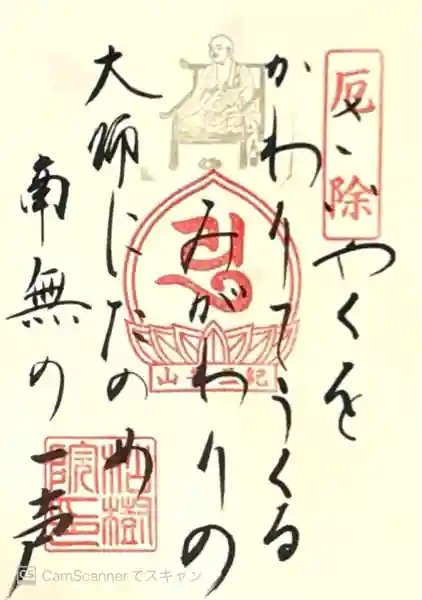 厄除
やくを
かわりてうくる
みがわりの
大師にたのめ
南無の一声
樹
院印
CamScannerでスキャン